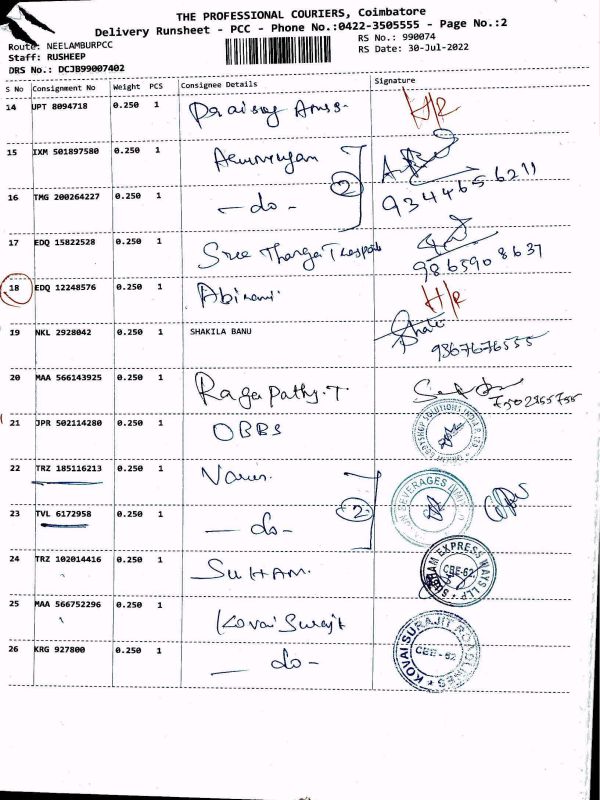 THE PROFESSIONAL COURIERS, Coimbatore
Delivery Runsheet - PCC - Phone No.:0422-3505555 - Page No.:2
Route: NEELAMBURPCC RS No.: 990074
Staff: RUSHEEP RS Date: 30-Jul-2022
DRS No.: DCJB99007402
S No Consignment No Weight PCS Consignee Details Signature
14 UPT 8094718 0.250 1 H/R
15 IXM 501897580 0.250 1
16 TMG 200264227 0.250 1 - do - 2 9344656211
17 EDQ 15822528 0.250 1 Sree 9865908637
18 EDQ 12248576 0.250 1 Abirami H/R
19 NKL 2928042 0.250 1 SHAKILA BANU 9367676555
20 MAA 566143925 0.250 1 Ragapathy.T
21 JPR 502114280 0.250 1 OBBS
22 TRZ 185116213 0.250 1
23 TVL 6172958 0.250 1 - do - 2
24 TRZ 102014416 0.250 1 SUHAM. EXPRESS WAYS LLP CBE-62
25 MAA 566752296 0.250 1 Kovai Surajt
26 KRG 927800 0.250 1 - do - KOVAI SURAJIT ROADLINES CBE-62